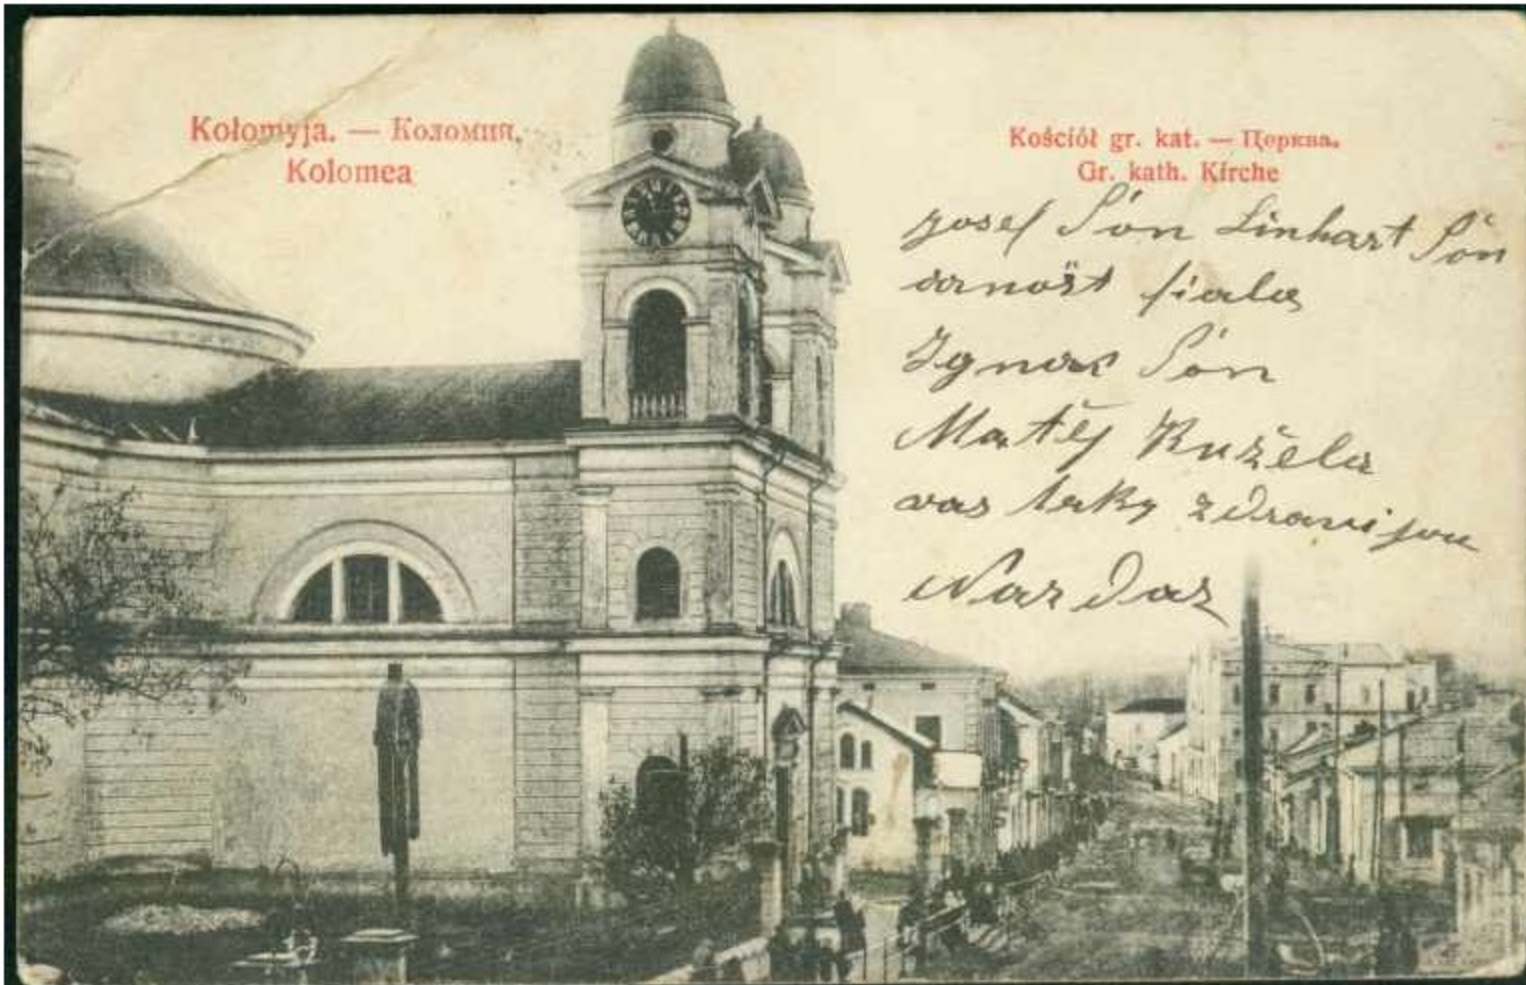 Kołomyja. — Коломия.
Kolomea
Kościół gr. kat. — Церква.
Gr. kath. Kirche
Josef Šón Linhart Šón
arnošt fiala
Ignac Šón
Matěj Kužela
vas taky zdravi jou
Nazdaz